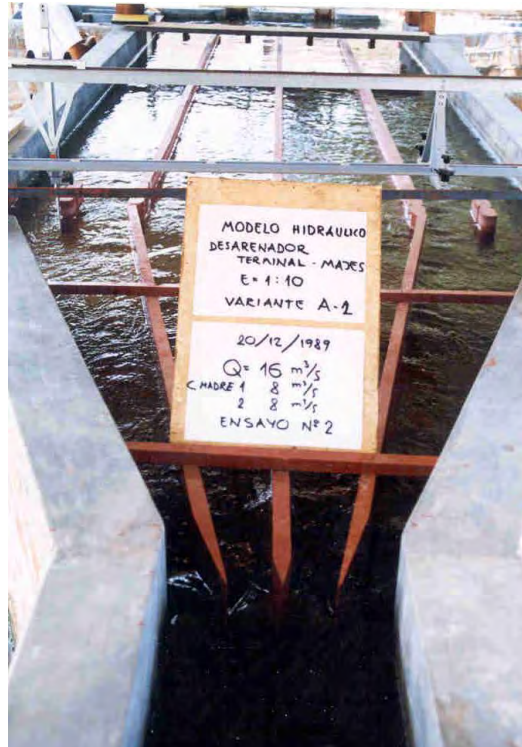 MODELO HIDRÁULICO
DESARENADOR
TERMINAL - MAJES
E = 1:10
VARIANTE A-2
20/12/1989
Q = 16 m³/s
C MADRE 1 8 m³/s
2 8 m³/s
ENSAYO Nº 2